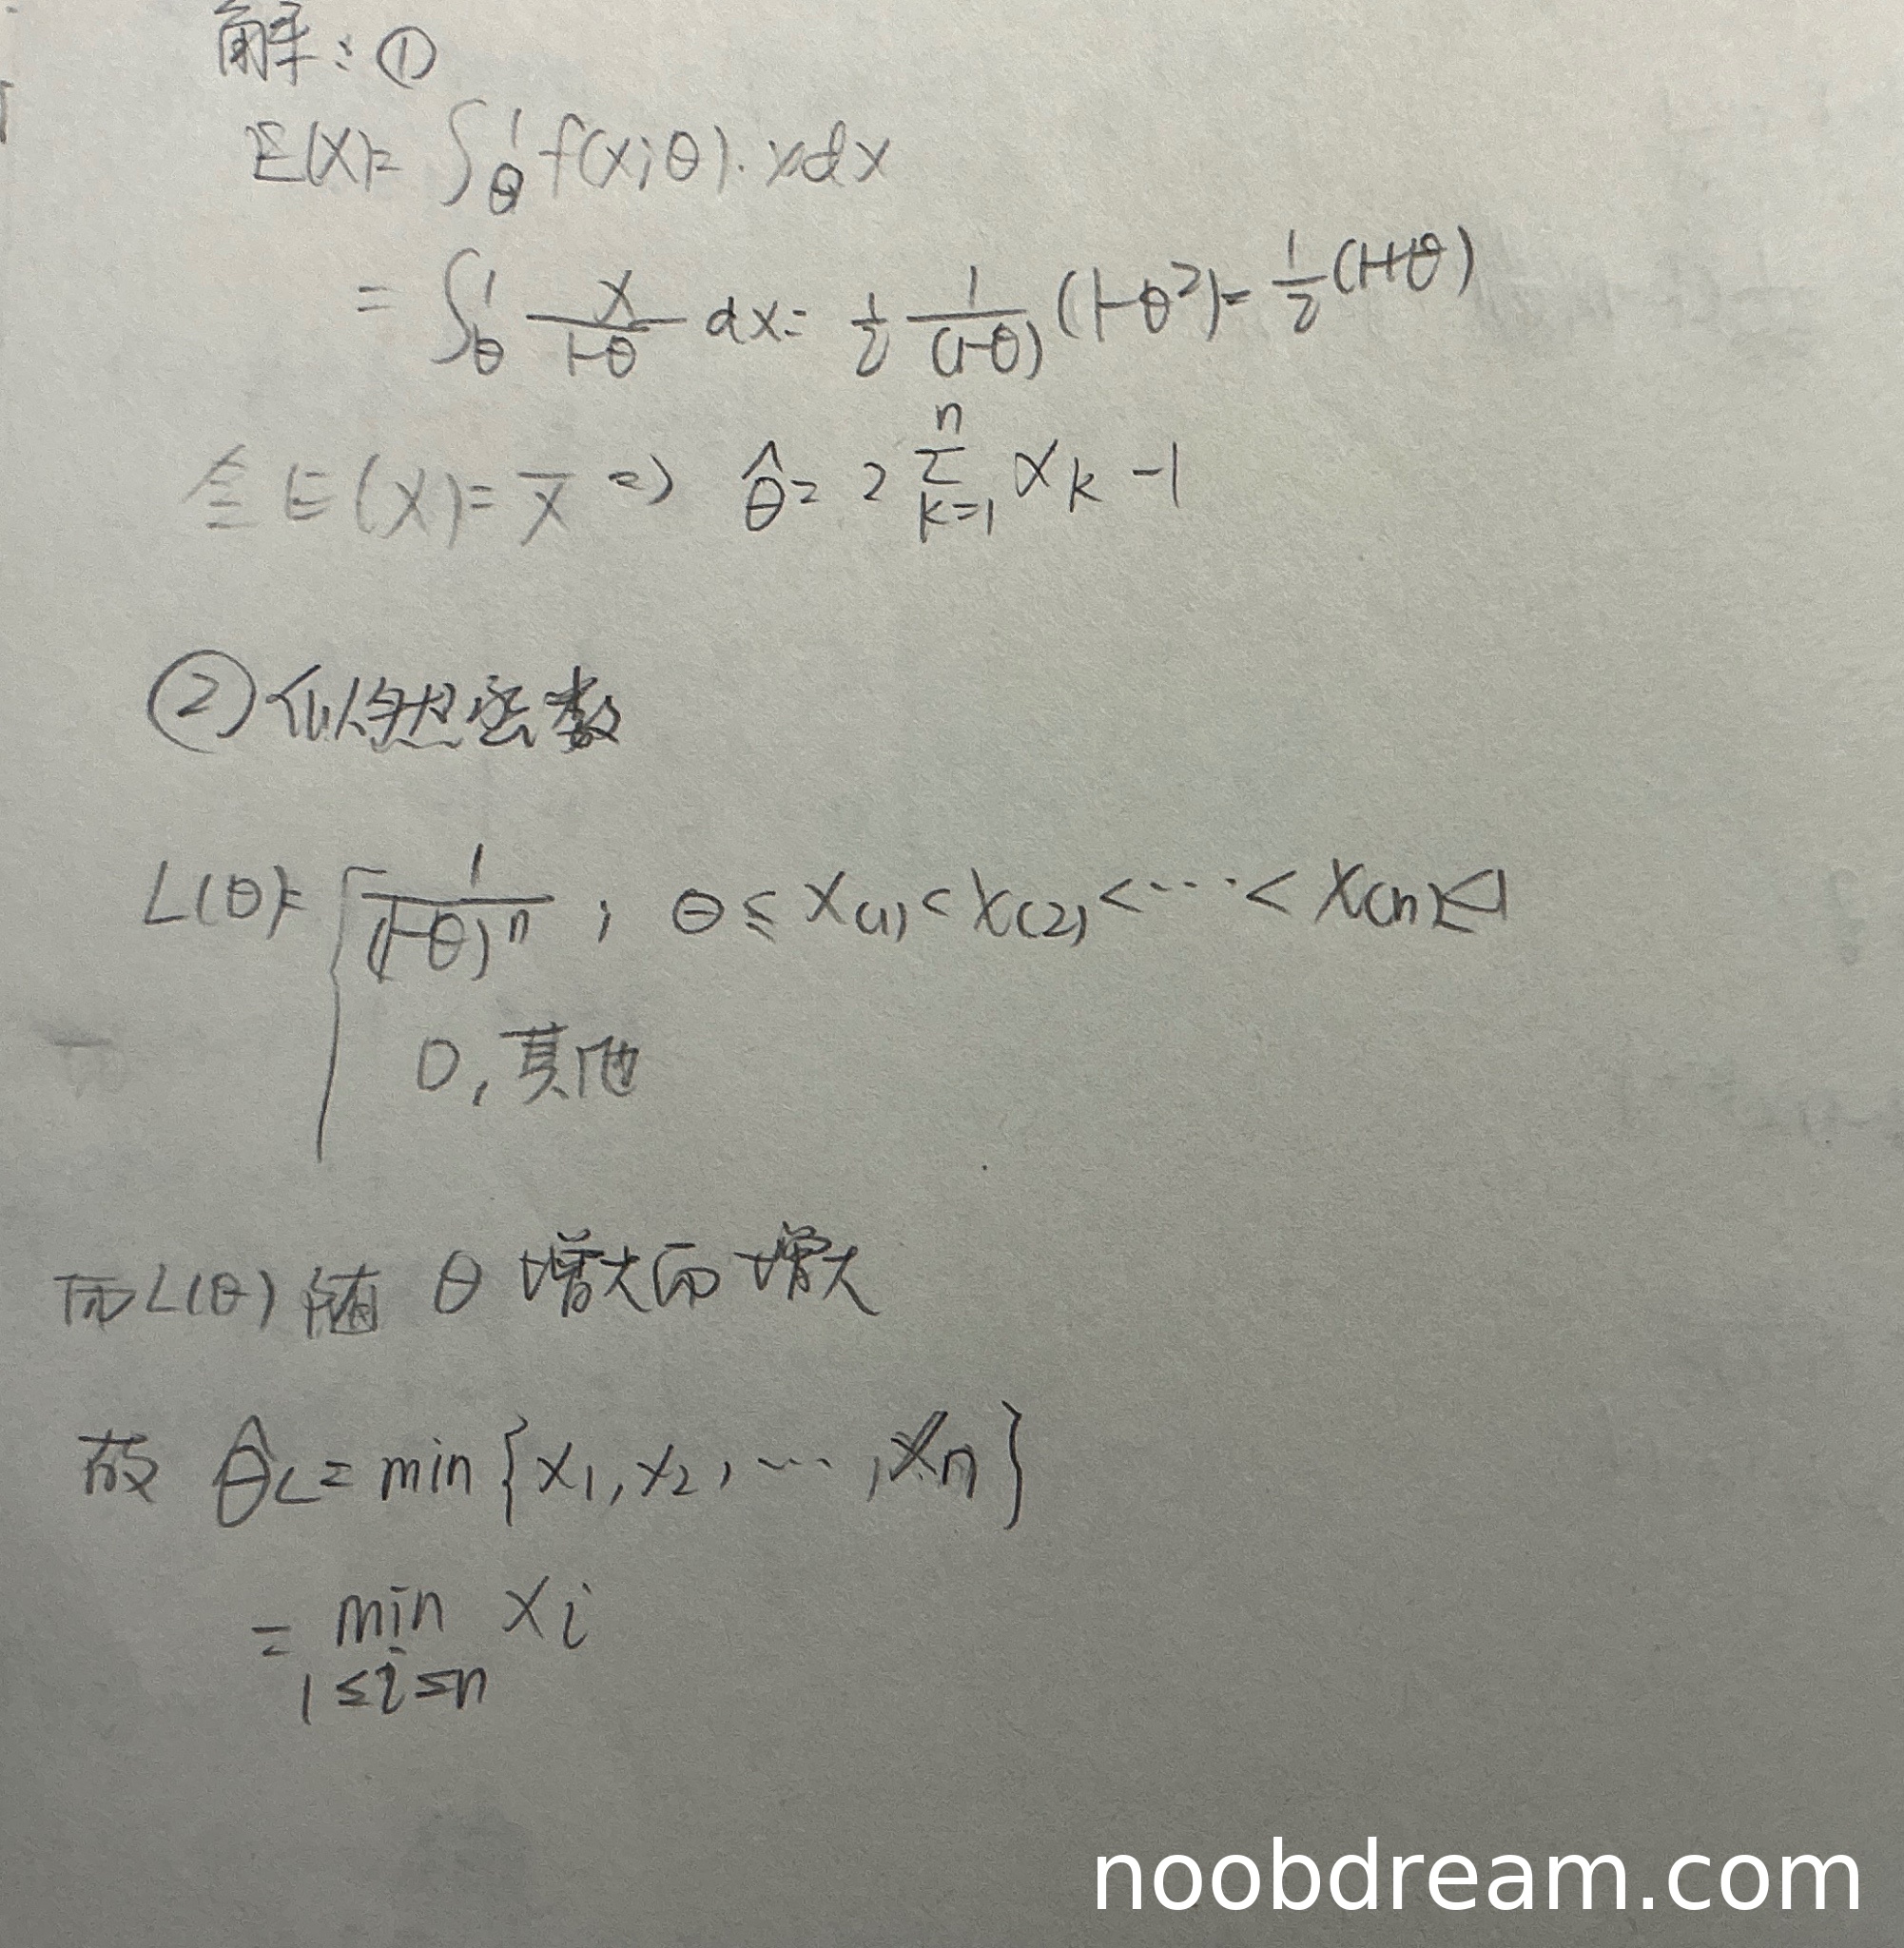 解：①
E(X)= ∫_θ^1 f(x;θ)·xdx
= ∫_θ^1 x/(1-θ) dx= 1/2 1/(1-θ) (1-θ²)= 1/2(1+θ)
令E(X)=x̄ => θ̂= 2 Σ_{k=1}^n x_k -1
②似然函数
L(θ)= { 1/(1-θ)^n , θ≤ X(1)<X(2)<…< X(n)≤1
0,其他
而L(θ)随 θ 增大而增大
故 θ̂_L= min{x₁,x₂,…,x_n}
= min_{1≤i≤n} x_i
noobdream.com